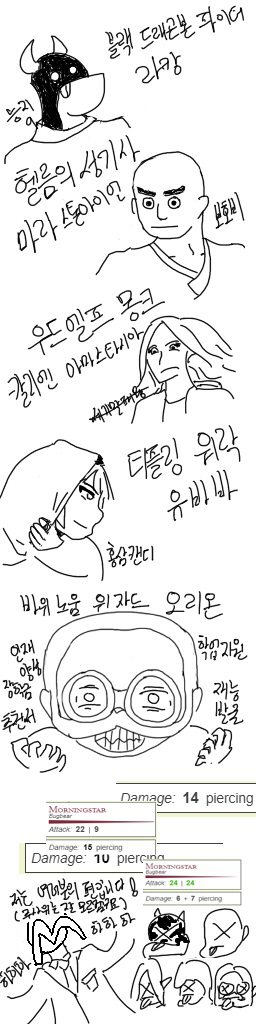 블랙 드래곤본 파이터
라캉
능지
헬름의 성기사
마라 스톤아이언
보호비
우드엘프 몽크
칼리엔 아마스타시아
티플링 워락
유바바
홍삼캔디
바위 노움 위자드 오리온
인재
양성
장학금
추천서
학업지원
재능
발굴
Damage: 14 piercing
MORNINGSTAR
Bugbear
Attack: 22 | 9
Damage: 15 piercing
Damage: 10 piercing
MORNINGSTAR
Bugbear
Attack: 24 | 24
Damage: 6 + 7 piercing
저는 여러분의 편입니다!
하하하
하하하